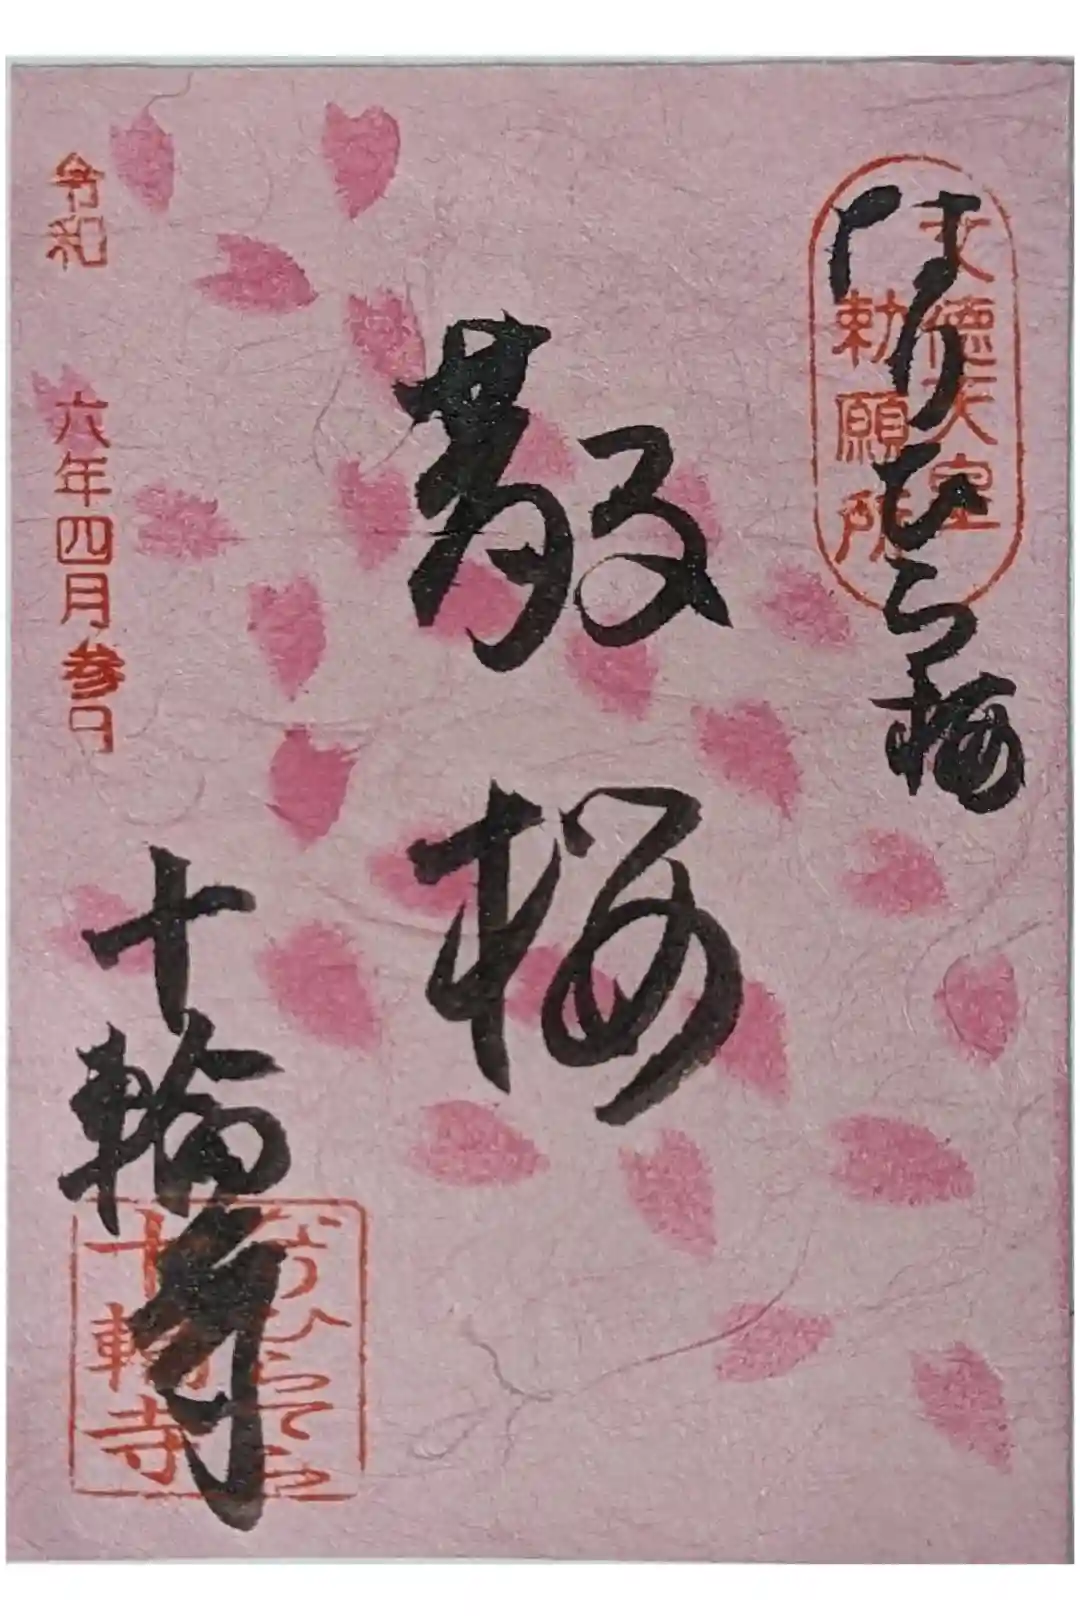 なりひら桜
文徳天皇
勅願所
散桜
令和六年四月参日
十輪寺
なりひらてら
十輪寺